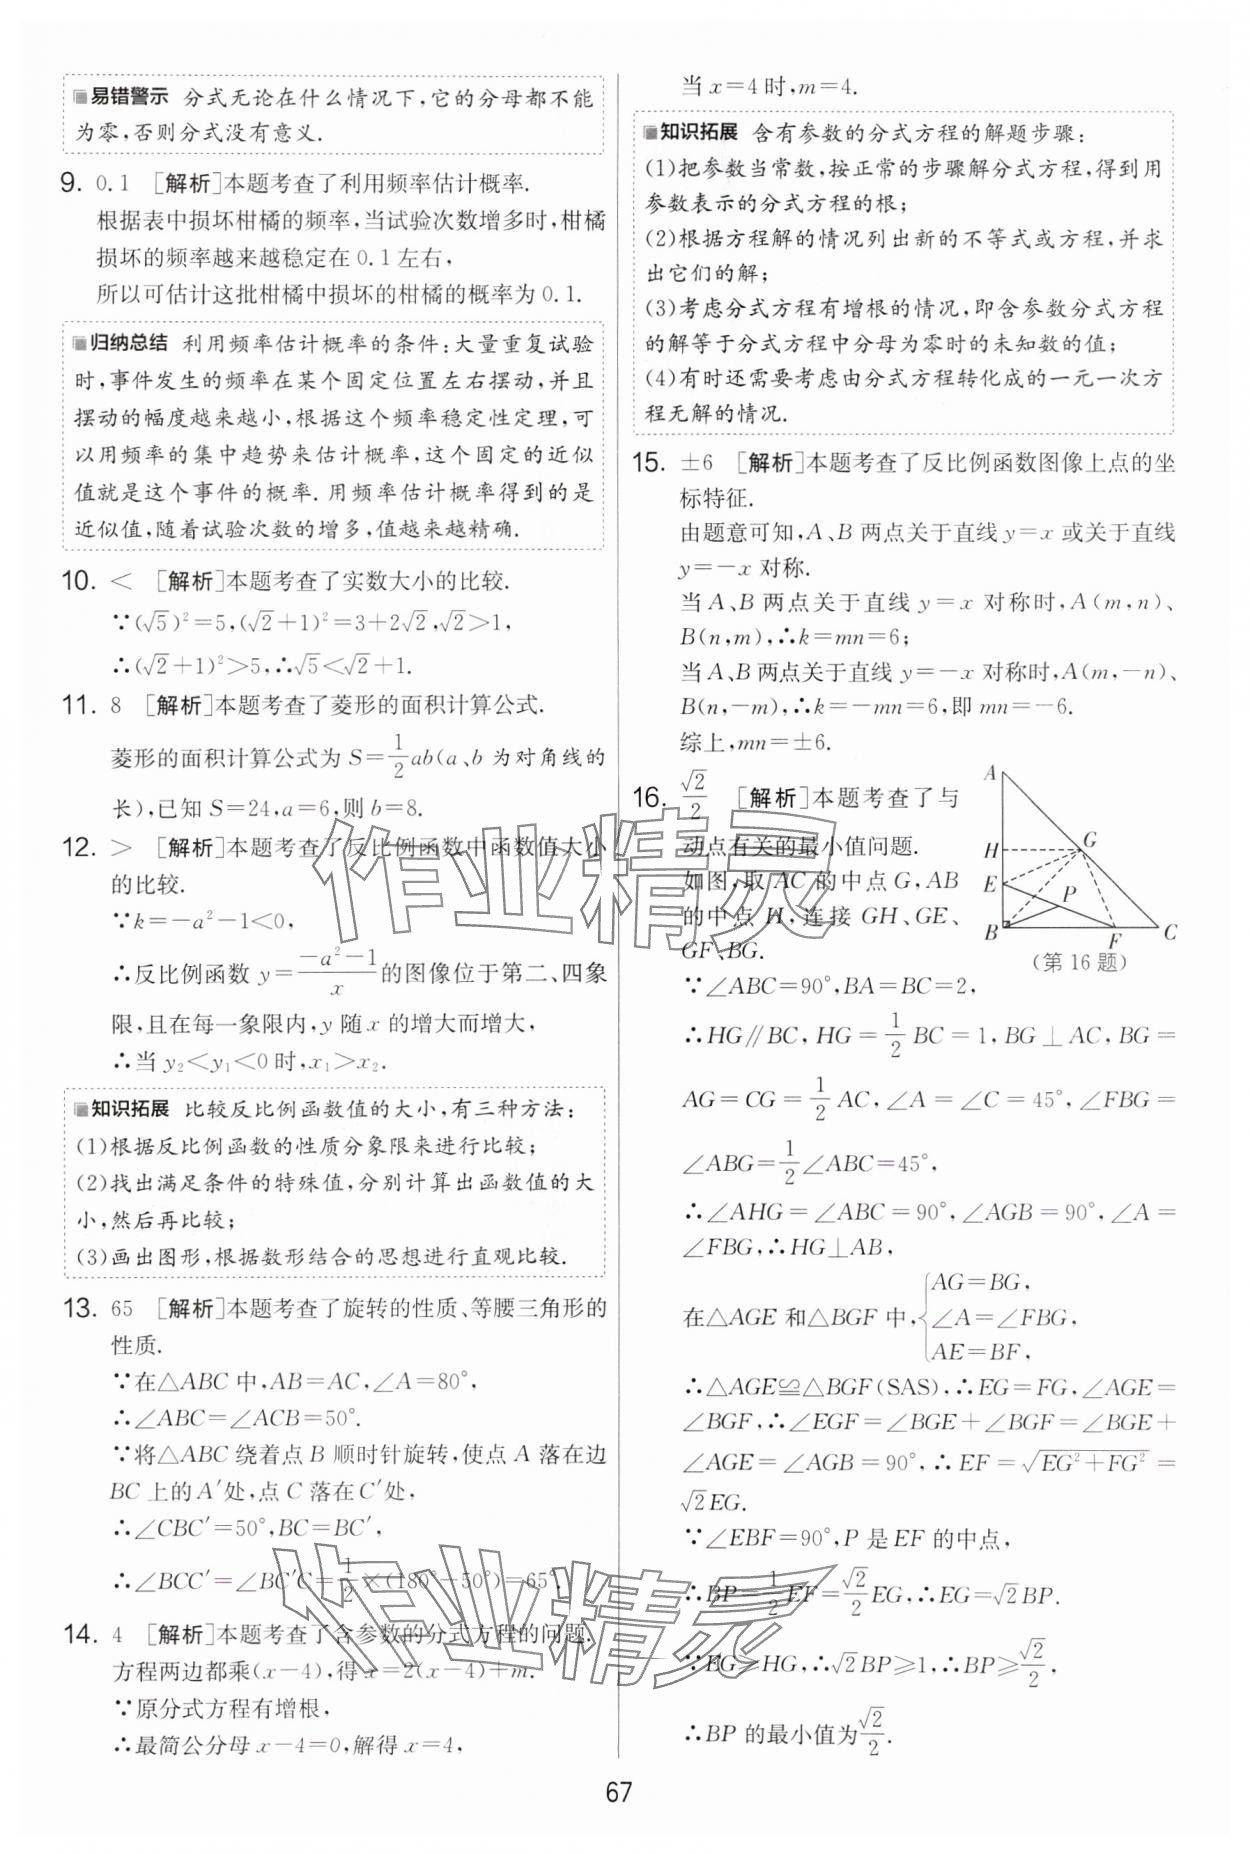 易错警示 分式无论在什么情况下,它的分母都不能
为零,否则分式没有意义.
9. 0.1 [解析]本题考查了利用频率估计概率.
根据表中损坏柑橘的频率,当试验次数增多时,柑橘
损坏的频率越来越稳定在0.1左右,
所以可估计这批柑橘中损坏的柑橘的概率为0.1.
归纳总结 利用频率估计概率的条件:大量重复试验
时,事件发生的频率在某个固定位置左右摆动,并且
摆动的幅度越来越小,根据这个频率稳定性定理,可
以用频率的集中趋势来估计概率,这个固定的近似
值就是这个事件的概率.用频率估计概率得到的是
近似值,随着试验次数的增多,值越来越精确.
10. < [解析]本题考查了实数大小的比较.
∵(√5)²=5,(√2+1)²=3+2√2,√2>1,
∴(√2+1)²>5,∴√5<√2+1.
11. 8 [解析]本题考查了菱形的面积计算公式.
菱形的面积计算公式为S=1/2ab(a、b为对角线的
长),已知S=24,a=6,则b=8.
12. > [解析]本题考查了反比例函数中函数值大小
的比较.
∵k=-a²-1<0,
∴反比例函数y=(-a²-1)/x的图像位于第二、四象
限,且在每一象限内,y随x的增大而增大,
∴当y₂<y₁<0时,x₁>x₂.
知识拓展 比较反比例函数值的大小,有三种方法:
(1)根据反比例函数的性质分象限来进行比较;
(2)找出满足条件的特殊值,分别计算出函数值的大
小,然后再比较;
(3)画出图形,根据数形结合的思想进行直观比较.
13. 65 [解析]本题考查了旋转的性质、等腰三角形的
性质.
∵在△ABC中,AB=AC,∠A=80°,
∴∠ABC=∠ACB=50°.
∵将△ABC绕着点B顺时针旋转,使点A落在边
BC上的A′处,点C落在C′处,
∴∠CBC′=50°,BC=BC′,
∴∠BCC′=∠BC′C=1/2×(180°-50°)=65°.
14. 4 [解析]本题考查了含参数的分式方程的问题.
方程两边都乘(x-4),得x=2(x-4)+m.
∵原分式方程有增根,
∴最简公分母x-4=0,解得x=4,
当x=4时,m=4.
知识拓展 含有参数的分式方程的解题步骤:
(1)把参数当常数,按正常的步骤解分式方程,得到用
参数表示的分式方程的根;
(2)根据方程解的情况列出新的不等式或方程,并求
出它们的解;
(3)考虑分式方程有增根的情况,即含参数分式方程
的解等于分式方程中分母为零时的未知数的值;
(4)有时还需要考虑由分式方程转化成的一元一次方
程无解的情况.
15. ±6 [解析]本题考查了反比例函数图像上点的坐
标特征.
由题意可知,A、B两点关于直线y=x或关于直线
y=-x对称.
当A、B两点关于直线y=x对称时,A(m,n)、
B(n,m),∴k=mn=6;
当A、B两点关于直线y=-x对称时,A(m,-n)、
B(n,-m),∴k=-mn=6,即mn=-6.
综上,mn=±6.
16. √2/2 [解析]本题考查了与
动点有关的最小值问题.
如图,取AC的中点G,AB
的中点H,连接GH、GE、
GF、BG.
A
H
G
E
P
B
F
C
(第16题)
∵∠ABC=90°,BA=BC=2,
∴HG∥BC,HG=1/2BC=1,BG⊥AC,BG=
AG=CG=1/2AC,∠A=∠C=45°,∠FBG=
∠ABG=1/2∠ABC=45°,
∴∠AHG=∠ABC=90°,∠AGB=90°,∠A=
∠FBG,∴HG⊥AB,
在△AGE和△BGF中,{AG=BG,
∠A=∠FBG,
AE=BF,
∴△AGE≌△BGF(SAS),∴EG=FG,∠AGE=
∠BGF,∴∠EGF=∠BGE+∠BGF=∠BGE+
∠AGE=∠AGB=90°,∴EF=√(EG²+FG²)=
√2EG.
∵∠EBF=90°,P是EF的中点,
∴BP=1/2EF=√2/2EG,∴EG=√2BP.
∵EG≥HG,∴√2BP≥1,∴BP≥√2/2,
∴BP的最小值为√2/2.
67
作业精灵
作业精灵